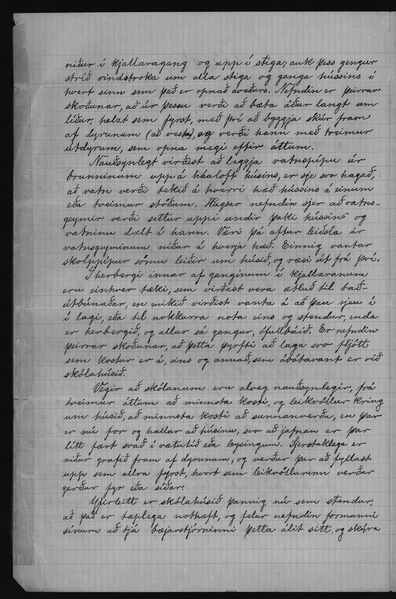 niður í kjallaragang og upp í stiga; auk þess gengur
stríð vindstroka um alla stiga og ganga hússins í
hvert sinn sem það er opnað áveðurs. Nefndin er þeirrar
skoðunar, að úr þessu verði að bæta áður langt um
líður, helzt sem fyrst, með því að byggja skúr fram
af dyrunum (að vestan), og verði hann með tveimur
útdyrum, sem opna megi eftir áttum.
Nauðsynlegt virðist að leggja vatnspípu úr
brunninum upp á háaloft hússins, er sje svo hagað,
að vatn verði tekið á hverri hæð hússins á einum
eða tveimur stöðum. Hugsar nefndin sjer að vatns-
geymir verði settur uppi undir þaki hússins og
vatninu dælt í hann. Væri þá aftur leidsla úr
vatnsgeyminum niður á hverja hæð. Einnig vantar
skolppípur sömu leiðir um húsið, og ræsi út frá því.
Í herbergi innar af ganginum í kjallaranum
eru einhver tæki, sem virðast vera ætluð til bað-
útbúnaðar, en mikið virðist vanta á að þau sjeu í
í lagi, eða til nokkurra nota eins og stendur, enda
er herbergið, og allur sá gangur, ófullbúið. Er nefndin
þeirrar skoðunar, að þetta þyrfti að laga svo fljótt
sem kostur er á, eins og annað, sem ábótavant er við
skólahúsið.
Vegir að skólanum eru alveg nauðsynlegir, frá
tveimur áttum að minnsta kosti, og leikvöllur kring
um húsið, að minnsta kosti að sunnanverðu, en þar
er nú for og hallar að húsinu, svo að jafnan er þar
lítt fært svað í vætutíð eða leysingum. Sjerstaklega er
niður grafið fram af dyrunum, og verður þar að fyllast
upp sem allra fyrst, hvort sem leikvöllurinn verður
gerður fyr eða síðar.
Yfirleitt er skólahúsið þannig nú sem stendur,
að það er tæplega nothæft, og felur nefndin formanni
sínum að tjá bæjarstjórninni þetta álit sitt, og skýra